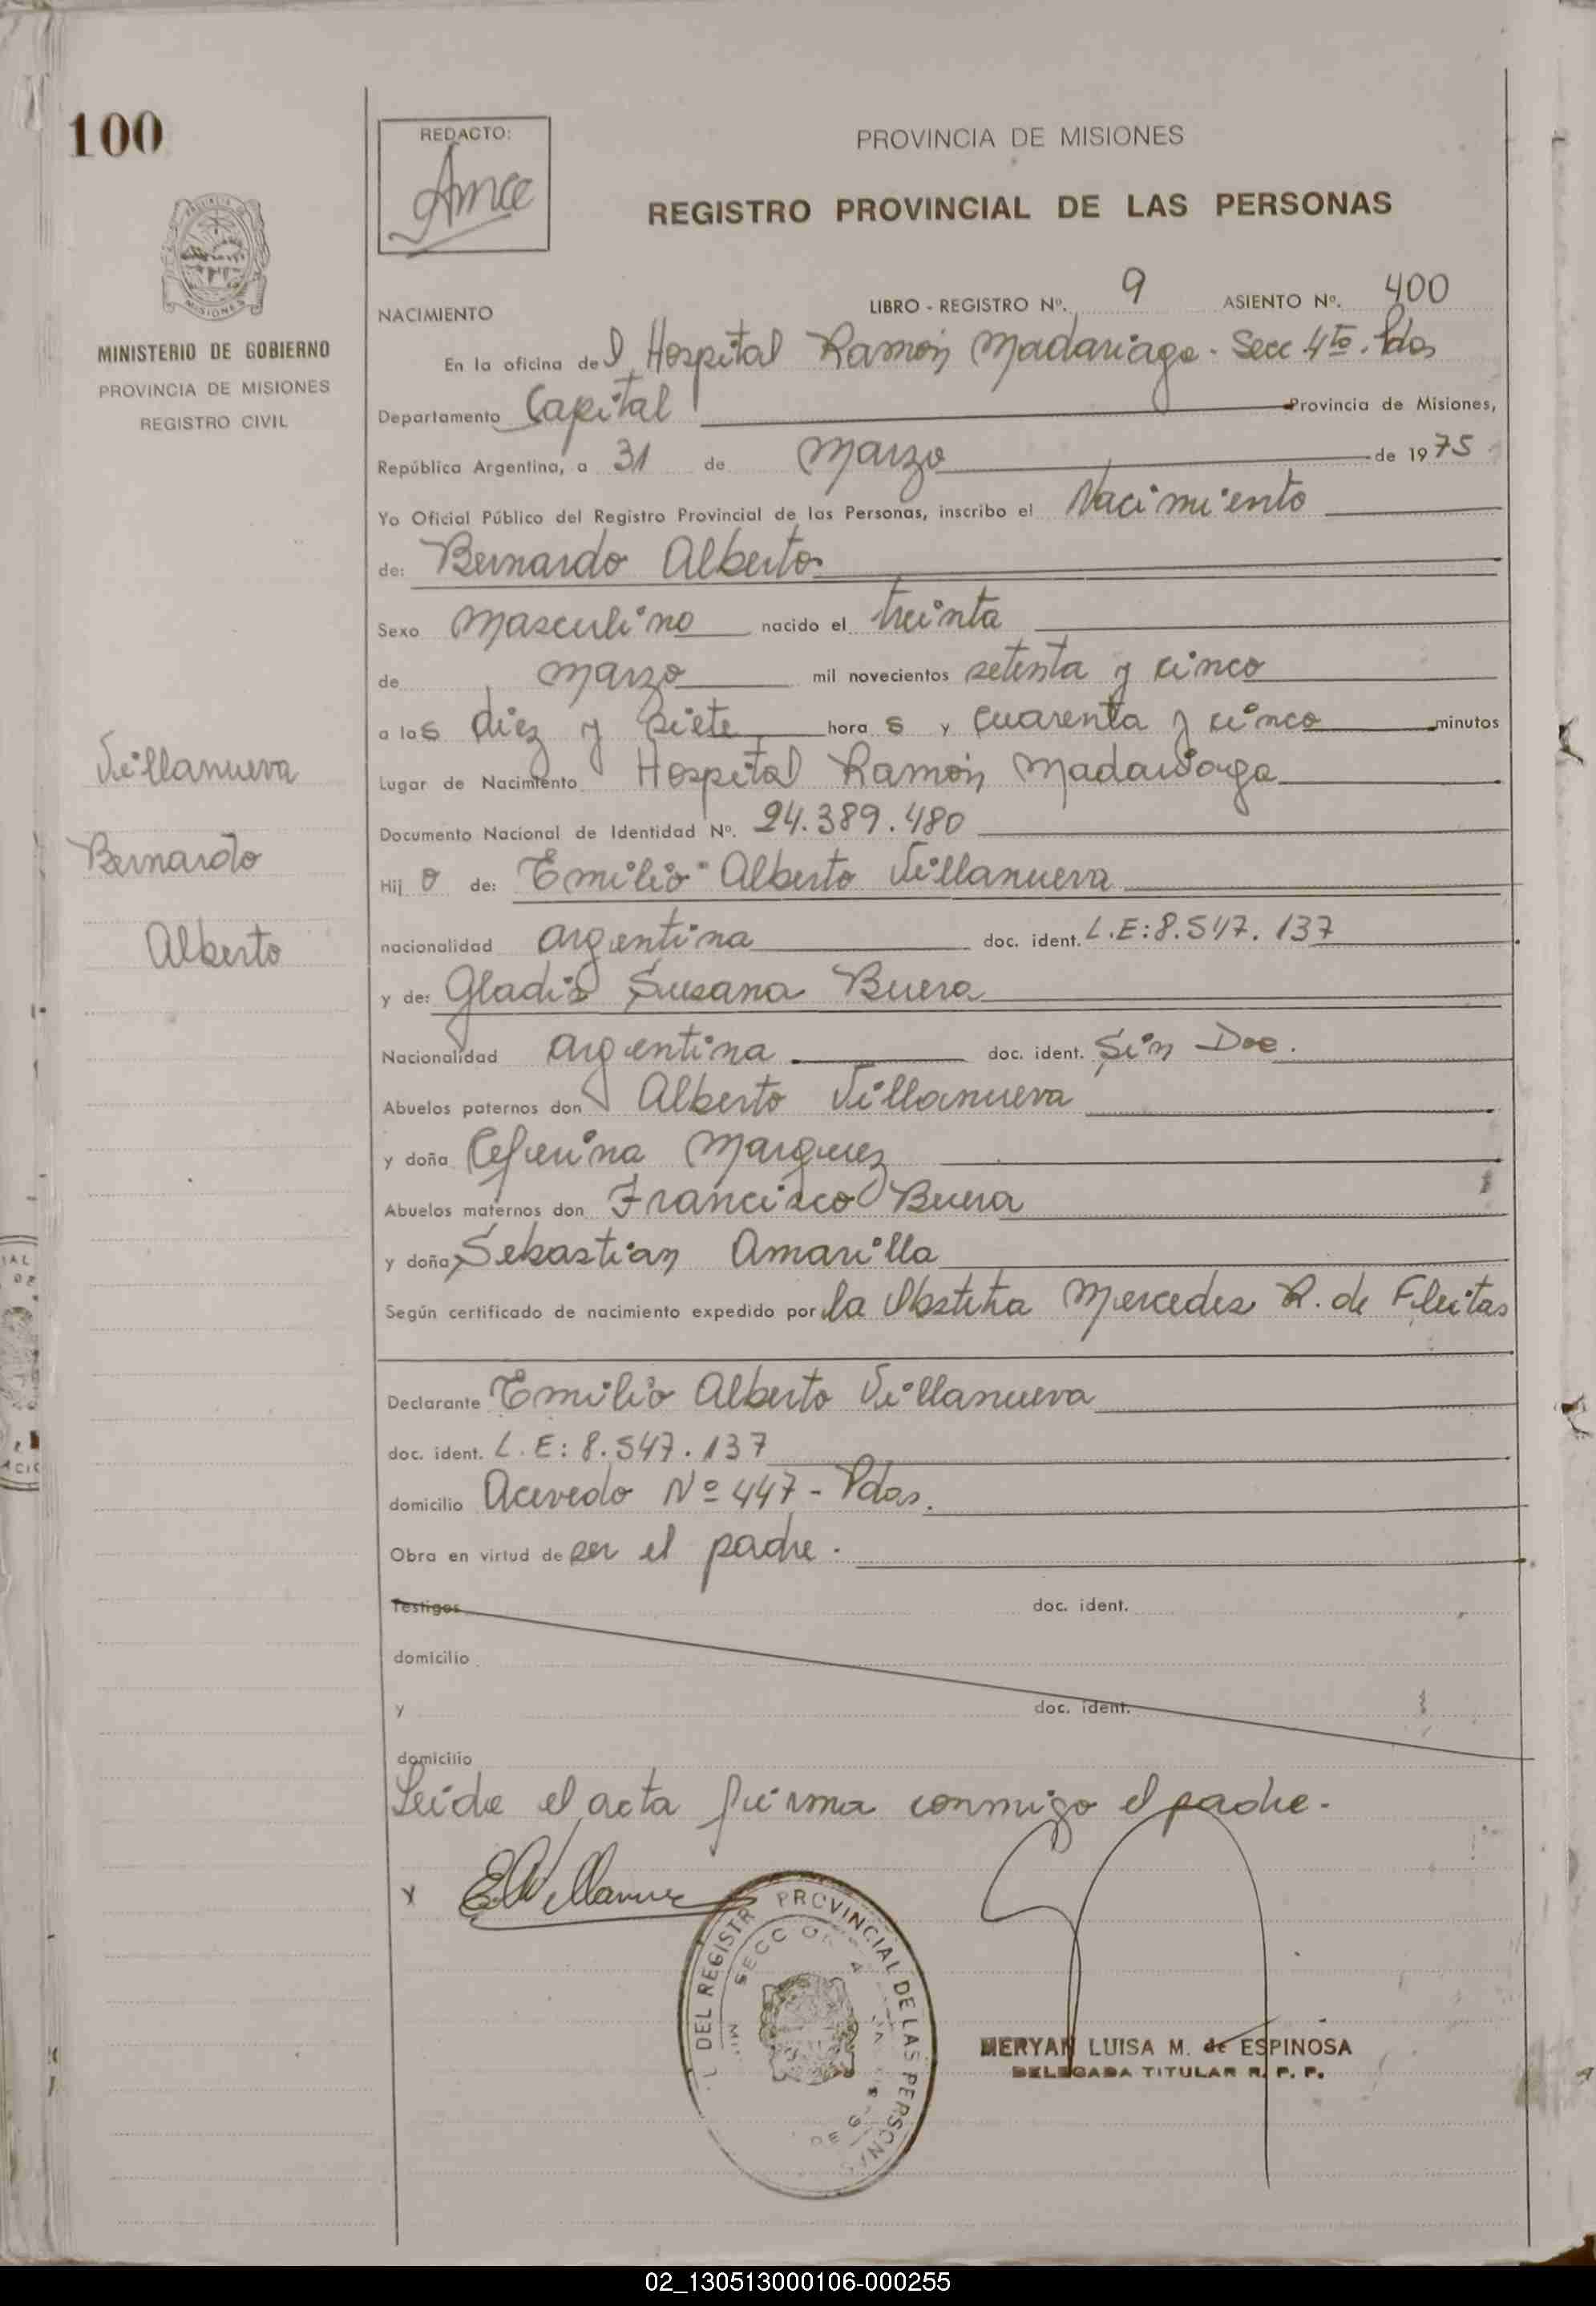 100
REDACTO:
PROVINCIA DE MISIONES
REGISTRO PROVINCIAL DE LAS PERSONAS
MINISTERIO DE GOBIERNO
PROVINCIA DE MISIONES
REGISTRO CIVIL
NACIMIENTO LIBRO - REGISTRO Nº. 9 ASIENTO Nº. 400
En la oficina del Hospital Ramón Madariaga - Secc 4to. Pdas
Departamento Capital Provincia de Misiones,
República Argentina, a 31 de Marzo de 1975
Yo Oficial Público del Registro Provincial de las Personas, inscribo el Nacimiento
de: Bernardo Alberto
Sexo Masculino nacido el treinta
de marzo mil novecientos setenta y cinco
a las diez y siete horas y cuarenta y cinco minutos
Lugar de Nacimiento Hospital Ramón Madariaga
Documento Nacional de Identidad Nº. 24.389.480
Hijo de: Emilio Alberto Villanueva
nacionalidad argentina doc. ident. L.E: 8.547.137
y de: Gladis Susana Buera
Nacionalidad argentina doc. ident. Sin Doc.
Abuelos paternos don Alberto Villanueva
y doña Ceferina Marquez
Abuelos maternos don Francisco Buera
y doña Sebastian Amarilla
Según certificado de nacimiento expedido por la Obstetra Mercedes R. de Fleitas
Declarante Emilio Alberto Villanueva
doc. ident. L.E: 8.547.137
domicilio Acevedo Nº 447 - Pdas.
Obra en virtud de ser el padre.
Testigos doc. ident.
domicilio
y doc. ident.
domicilio
Leida el acta firma conmigo el padre.
Villanueva
Bernardo
Alberto
x
DEL REGISTR PROVINCIAL DE LAS PERSONAS
SECC
MERYAN LUISA M. de ESPINOSA
DELEGADA TITULAR R. P. P.
02_130513000106-000255